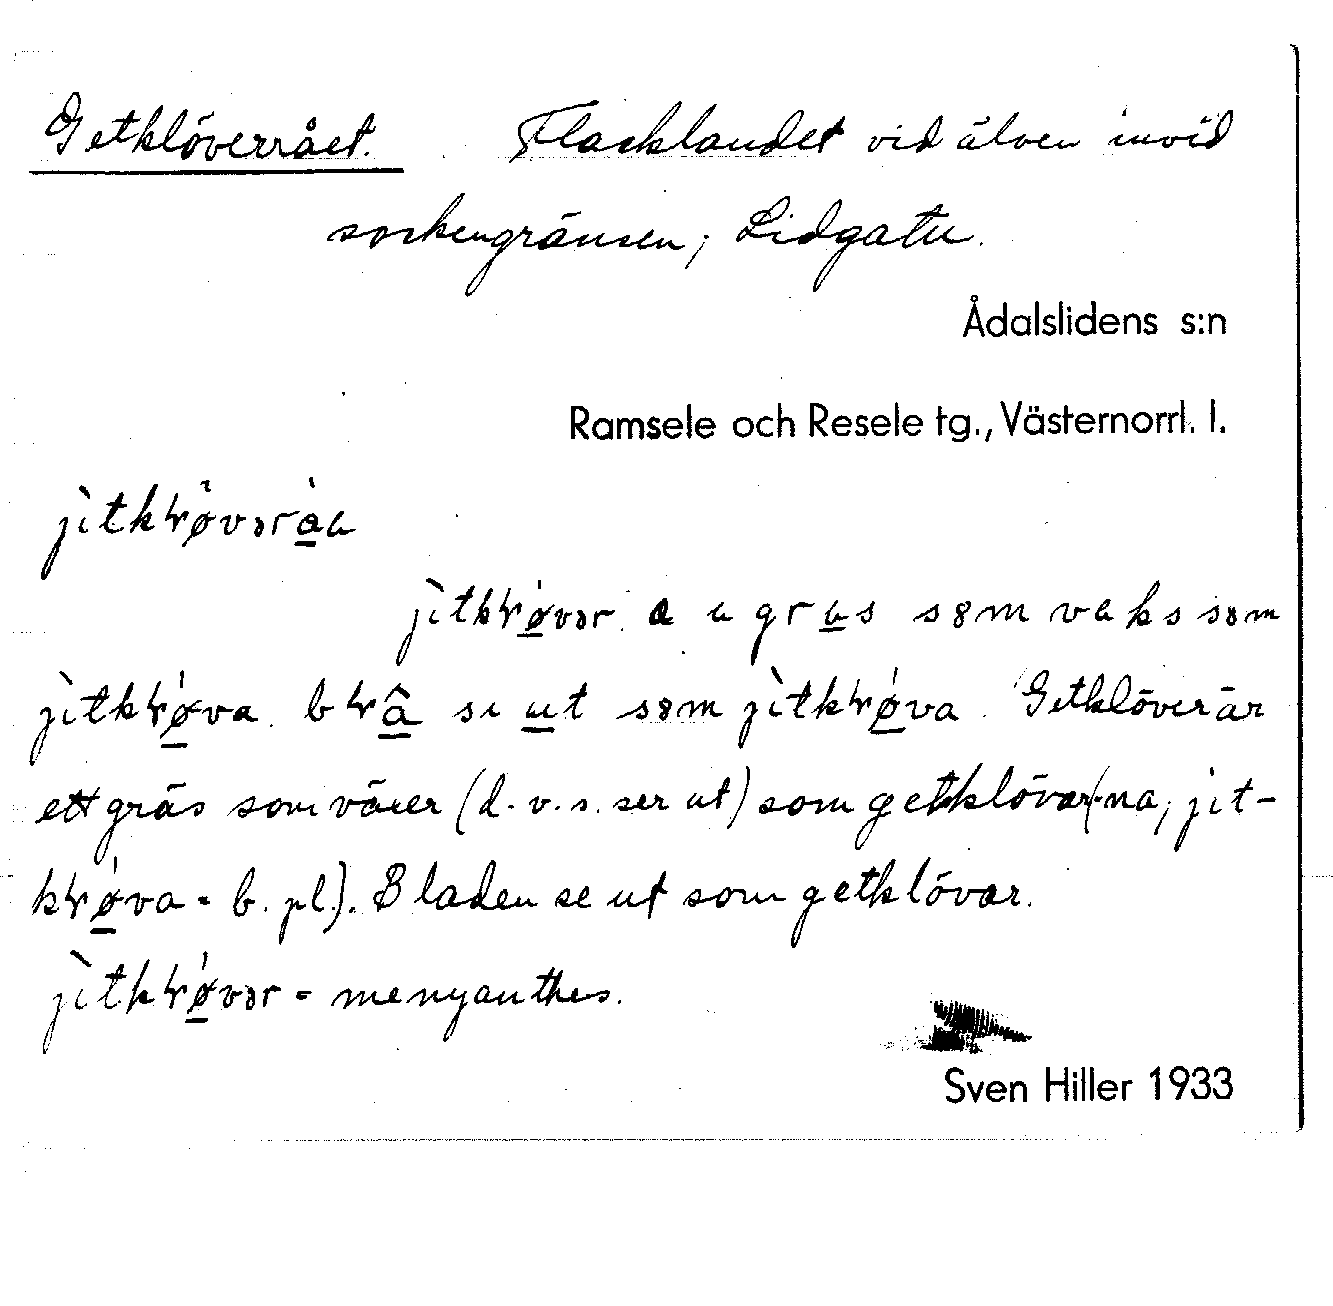 Getklöverrået. Flacklandet vid älven invid
sockengränsen, Lidgatu.
Ådalslidens s:n
Ramsele och Resele tg., Västernorrl. l.
jìtkɽø̀vəráa
jìtkɽø̀vər a a gras søm vaks søm
jìtkɽø̀va. bɽâ si ut søm jìtkɽø̀va. Getklöver är
ett gräs som växer (d. v. s. ser ut) som getklövar(na, jit-
kɽø̀va = b. pl.). Bladen se ut som getklövar.
jìtkɽø̀vər = menyanthes.
Sven Hiller 1933